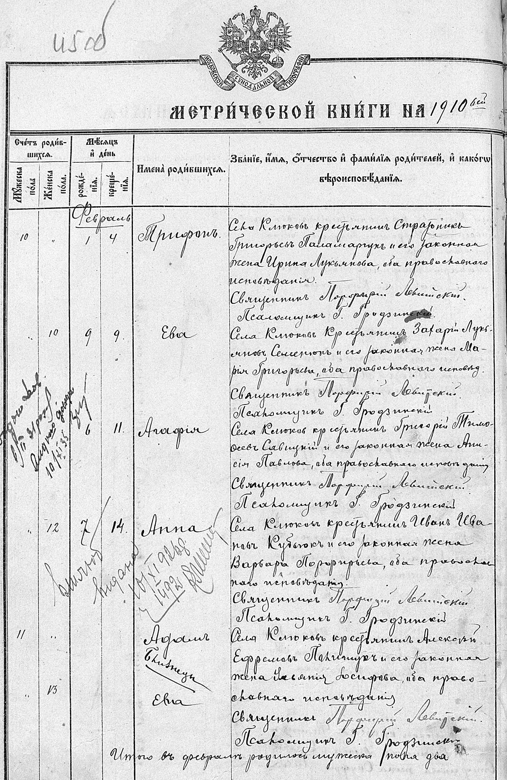 МЕТРИЧЕСКОЙ КНИГИ НА 1910 ый
Счетъ родив-
шихся.
Мужеска пола.
Женска пола.
Мѣсяцъ
и день
рожденія.
крещенія.
Имена родившихся.
Званіе, имя, отчество и фамилія родителей, и какого
вѣроисповѣданія.
Февраль
10 " 1 4 Трифонъ.
Села Клюковъ крестьянинъ
Григорьевъ Паламарчукъ и его законная
жена Ирина Лукьянова, оба православнаго
исповѣданія.
Священникъ Порфирій Левитскій.
Псаломщикъ Г. Гродзинскій
" 10 9 9. Ева
Села Клюковъ крестьянинъ Захарій Лукья-
новъ и его законная жена Ма-
рія Григорьева, оба православнаго исповѣд.
Священникъ Порфирій Левитскій
Псаломщикъ Г. Гродзинскій
6 11. Агафія
Села Клюковъ крестьянинъ Григорій Тимо-
феевъ Савицкій и его законная жена Ани-
сія Павлова, оба православнаго исповѣданія
Священникъ Порфирій Левитскій.
Псаломщикъ Г. Гродзинскій
" 12 7 14. Анна
Села Клюковъ крестьянинъ Иванъ Ива-
новъ и его законная жена
Варвара Порфирьева, оба православ-
наго исповѣданія
Священникъ Порфирій Левитскій
Псаломщикъ Г. Гродзинскій
11 " Адамъ
Близнецы
" 13 Ева
Села Клюковъ крестьянинъ Алексѣй
Ефремовъ и его законная
жена Осипова, оба право-
славнаго исповѣданія
Священникъ Порфирій Левитскій.
Псаломщикъ Г. Гродзинскій
Итого въ февралѣ родилось мужеска пола два